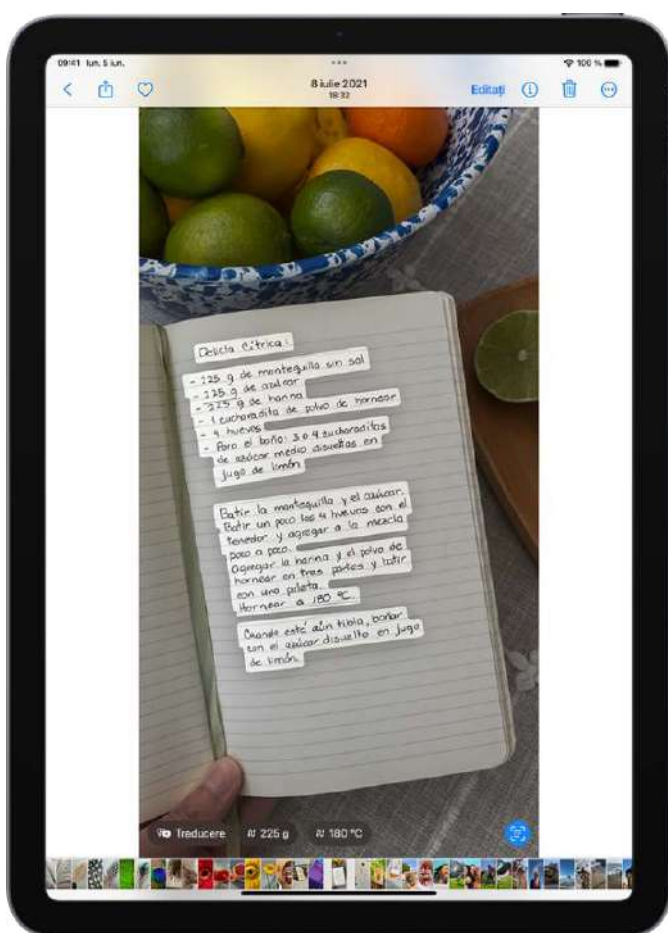 09:41 lun. 5 iun.
100 %
8 iulie 2021
18:32
Editați
Delicia Cítrica:
- 225 g de mantequilla sin sal
- 225 g de azúcar
- 225 g de harina
- 1 cucharadita de polvo de hornear
- 4 huevos
- Para el baño: 3 o 4 cucharaditas
de azúcar medio disueltas en
jugo de limón
Batir la mantequilla y el azúcar.
Batir un poco los 4 huevos con el
tenedor y agregar a la mezcla
poco a poco.
Agregar la harina y el polvo de
hornear en tres partes y batir
con una paleta.
Hornear a 180 °C.
Cuando esté aún tibia, bañar
con el azúcar disuelto en jugo
de limón.
Traducere
225 g
180 °C